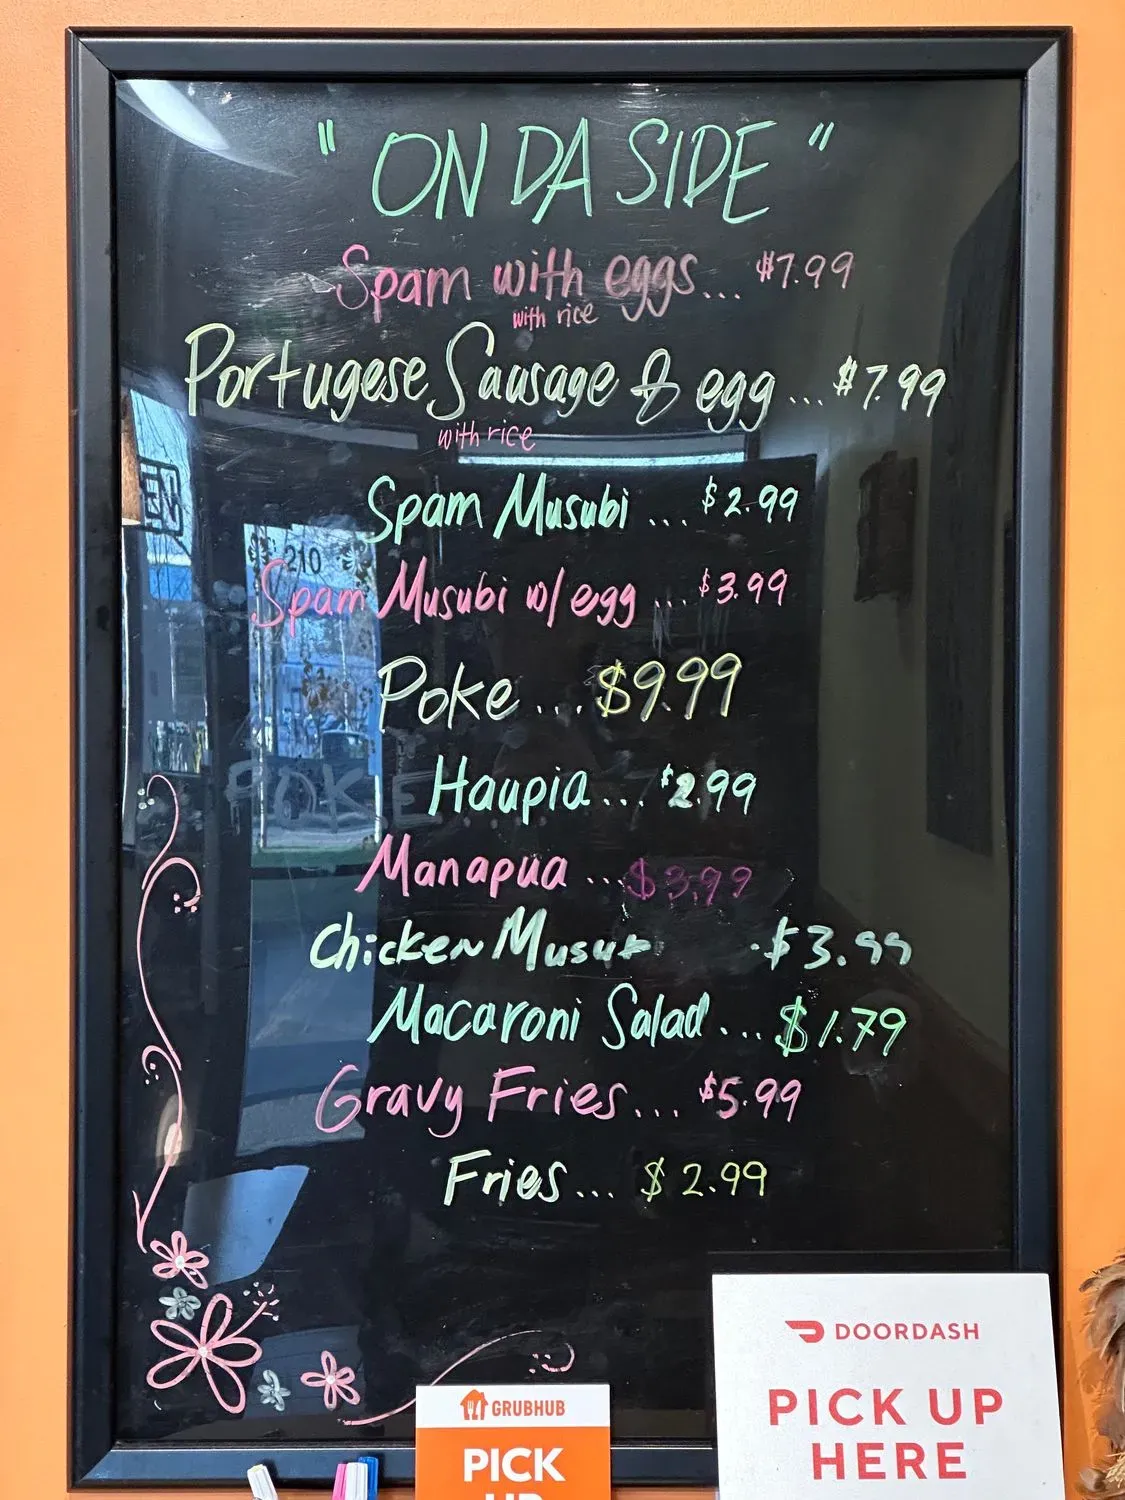 " ON DA SIDE "
Spam with eggs... $7.99
with rice
Portugese Sausage & egg ... $7.99
with rice
Spam Musubi ... $2.99
Spam Musubi w/ egg ... $3.99
Poke ... $9.99
Haupia... $2.99
Manapua ... $3.99
Chicken $3.99
Macaroni Salad ... $1.79
Gravy Fries... $5.99
Fries... $2.99
210
POKE
DOORDASH
PICK UP
HERE
GRUBHUB
PICK
UP